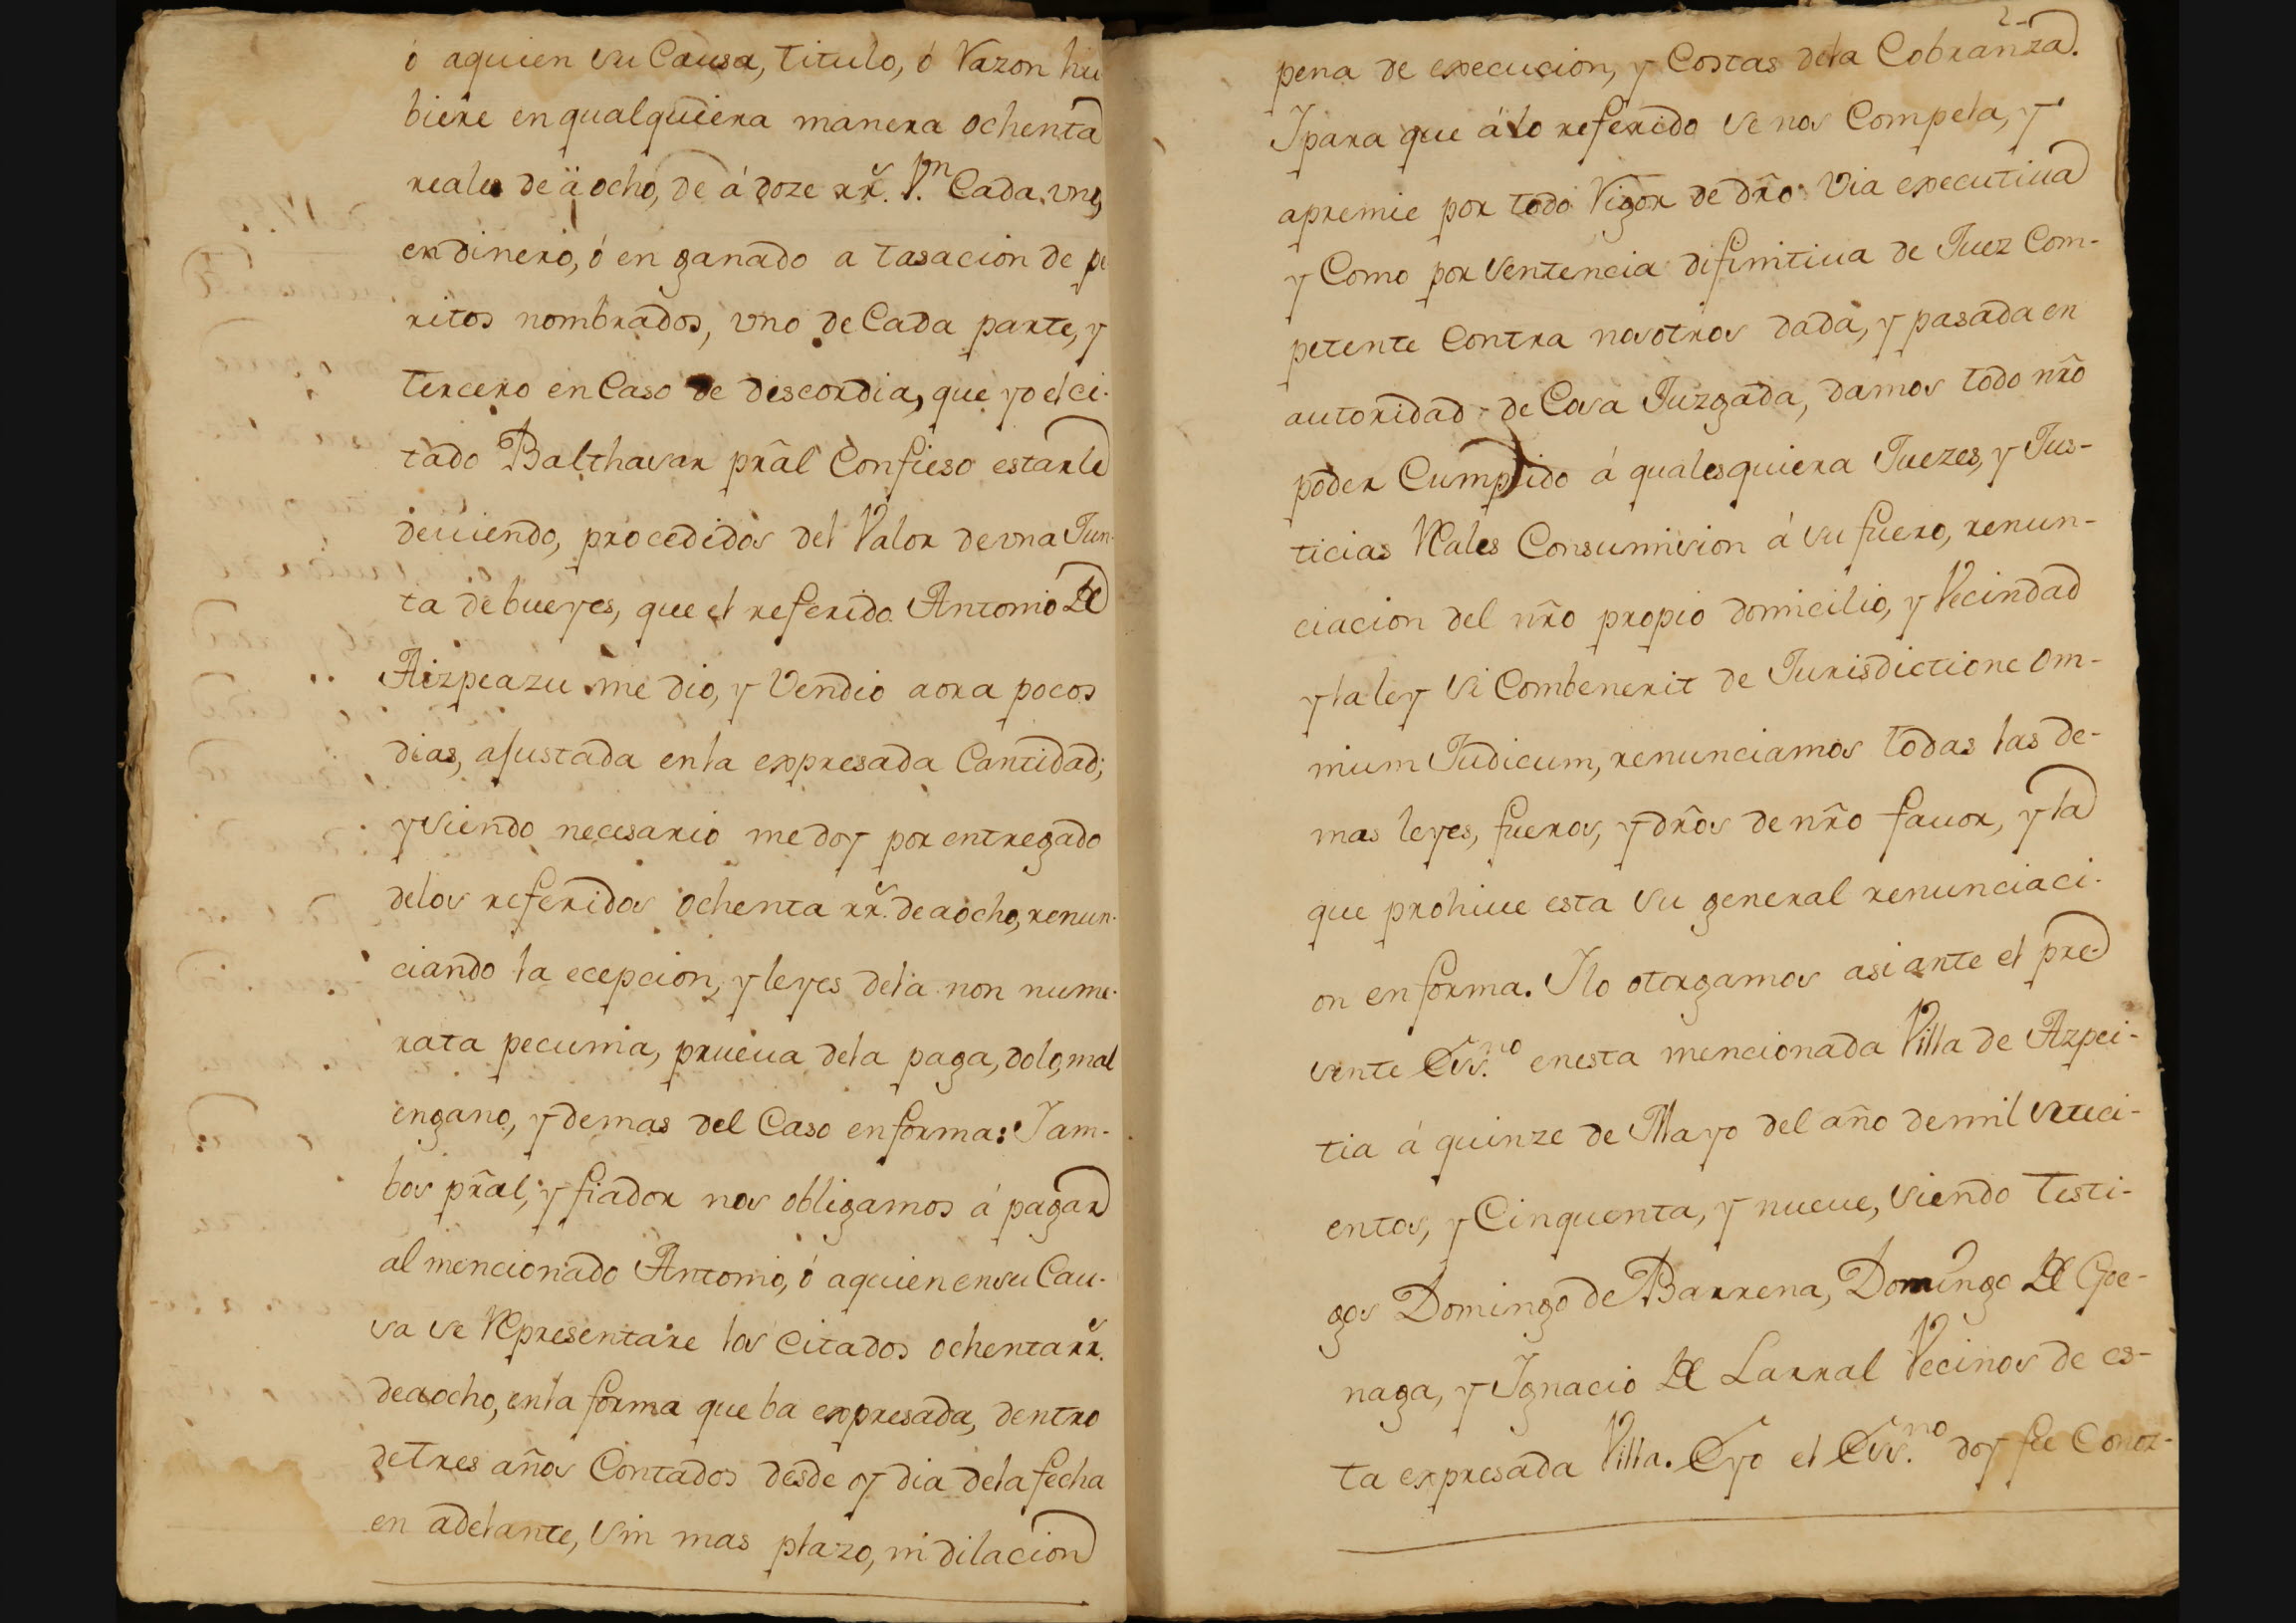 ó aquien su Causa, titulo, ó Razon hu
biere en qualquiera manera ochenta
reales de à ocho, de á doze rr.ˢ V.ⁿ Cada uno,
en dinero, ó en ganado a tasacion de pe
ritos nombrados, uno de Cada parte, y
tercero en Caso de discordia, que yo el ci-
tado Balthasar prãl Confieso estarle
deviendo, procedidos del Valor de vna Jun-
ta de bueyes, que el referido Antonio de
Aizpeazu me dio, y Vendio aora pocos
dias, ajustada en la expresada Cantidad;
y siendo necesario me doy por entregado
delos referidos ochenta rr.ˢ de aocho, renun-
ciando la ecepcion, y leyes dela non nume-
rata pecunia, prueva dela paga, dolo, mal
engano, y demas del Caso en forma: I am-
bos prãl, y fiador nos obligamos á pagar
al mencionado Antonio, ó aquien ensu Cau-
sa se Representare los citados ochenta rr.ˢ
de aocho, enla forma que ba expresada, dentro
de tres años Contados desde oy dia dela fecha
en adelante, sin mas plazo, ni dilacion
2-
pena de execucion, y Costas dela Cobranza.
I para que á lo referido se nos Compela, y
apremie por todo Rigor de dr̃o Via executiua
y Como por sentencia difinitiua de Juez Com-
petente Contra nosotros dada, y pasada en
autoridad de Cosa Juzgada, damos todo nr̃o
poder Cumplido á qualesquiera Juezes, y Jus-
ticias Rales Consumision á su fuero, renun-
ciacion del nr̃o propio domicilio, y Vecindad
y la ley si Combenerit de Jurisdictione om-
nium Judicum, renunciamos todas las de-
mas leyes, fueros, y dr̃os de nr̃o favor, y la
que prohive esta su general renunciaci-
on en forma. I lo otorgamos asi ante el pre-
sente Ess.ⁿᵒ enesta mencionada Villa de Azpei-
tia á quinze de Mayo del año de mil seteci-
entos, y Cinquenta, y nueve, siendo testi-
gos Domingo de Barrena, Domingo de Goe-
naga, y Ignacio de Larral Vecinos de es-
ta expresada Villa. E yo el Ess.ⁿᵒ doy fee Conoz-